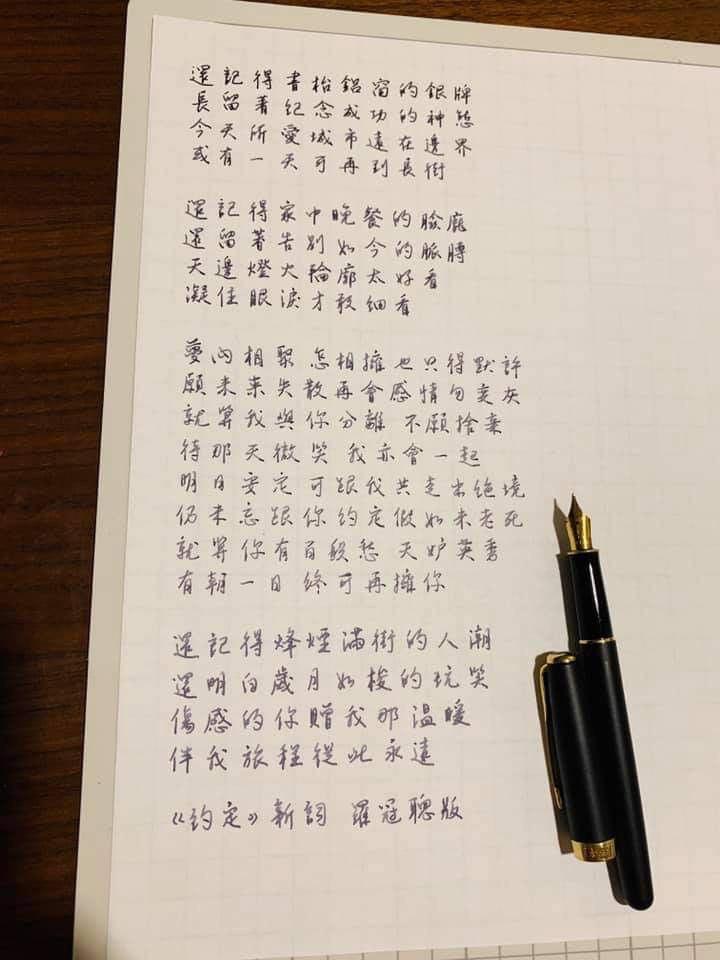 還記得書枱鋁窗的銀牌
長留著紀念成功的神態
今天所愛城市遠在邊界
或有一天可再到長街
還記得家中晚餐的臉龐
還留著告別如今的脈膊
天邊燈火輪廓太好看
凝住眼淚才敢細看
夢內相聚 怎相擁也只得默許
願未來失散再會感情勿變灰
就算我與你分離 不願捨棄
待那天微笑 我亦會一起
明日安定 可跟我共走出絕境
仍未忘跟你約定假如未老死
就算你有百般愁 天妒英秀
有朝一日 終可再擁你
還記得烽煙滿街的人潮
還明白歲月如梭的玩笑
傷感的你贈我那溫暖
伴我旅程從此永遠
《約定》新詞 羅冠聰版